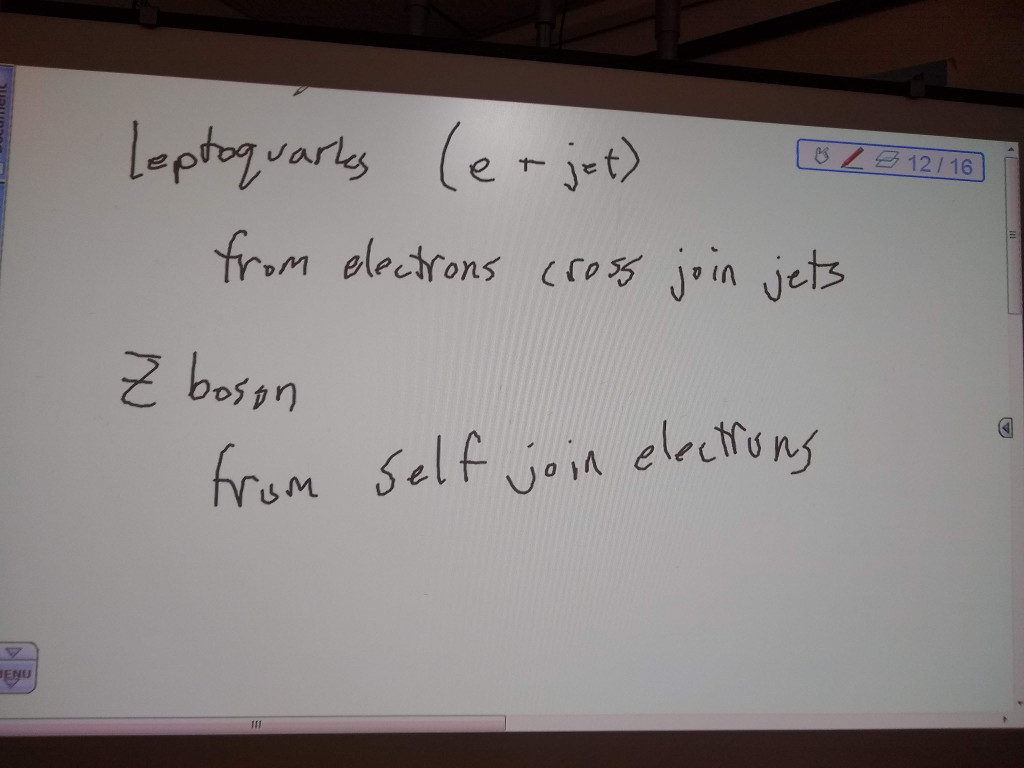 leptoquarks (e + jet)
12 / 16
from electrons cross join jets
Z boson
from self join electrons
MENU